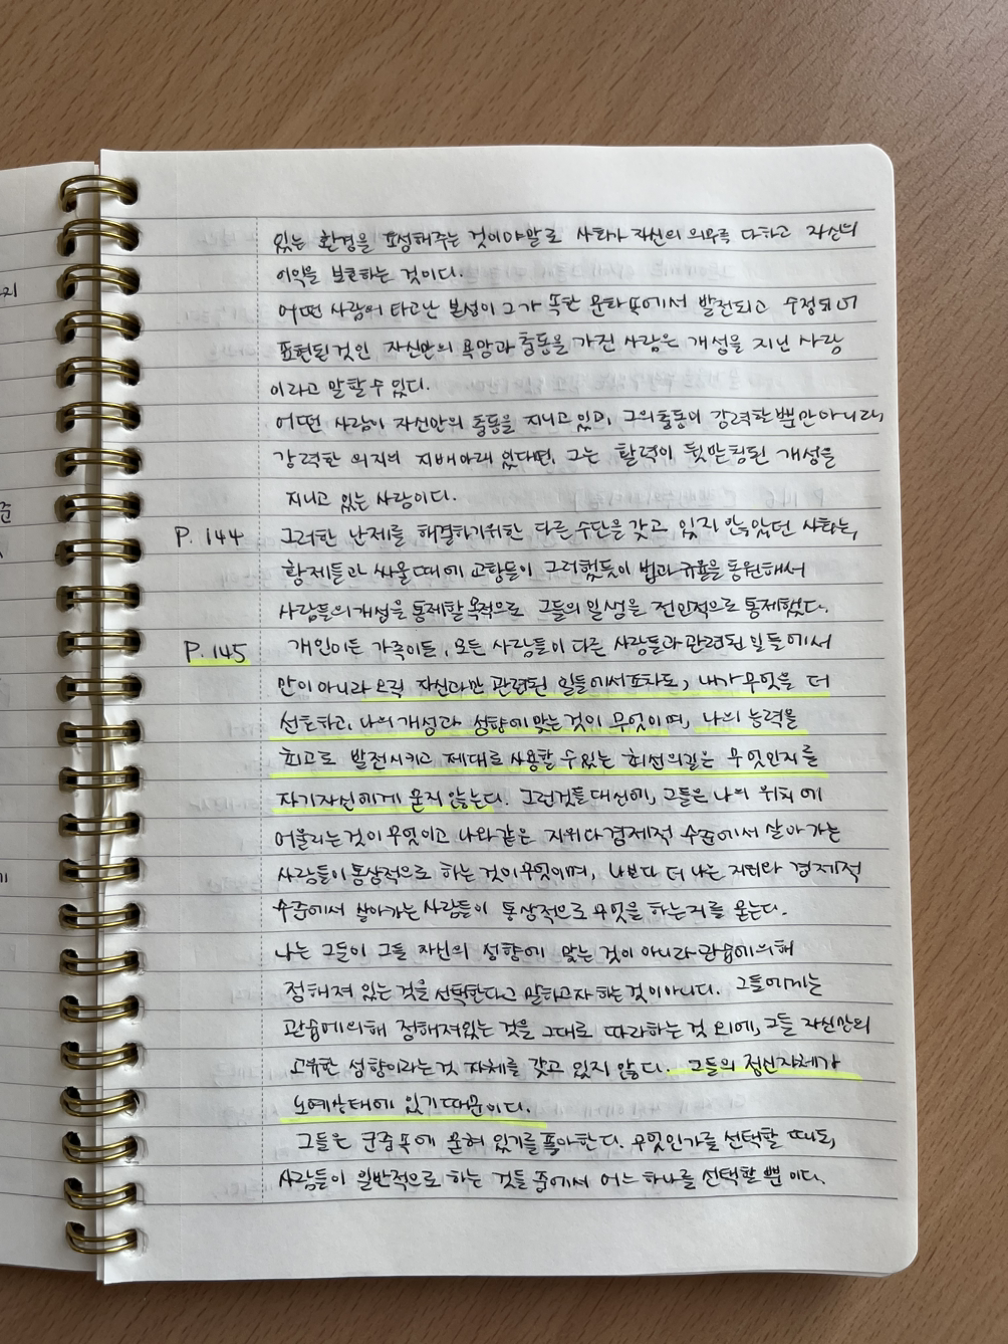 있는 환경을 조성해주는 것이야말로 사회가 자신의 의무를 다하고 자신의
이익을 보호하는 것이다.
어떤 사람이 타고난 본성이 그가 속한 문화 속에서 발전되고 수정되어
표현된 것인 자신만의 욕망과 충동을 가진 사람은 개성을 지닌 사람
이라고 말할 수 있다.
어떤 사람이 자신만의 충동을 지니고 있고, 그의 충동이 강력할 뿐만 아니라,
강력한 의지의 지배아래 있다면, 그는 활력이 뒷받침된 개성을
지니고 있는 사람이다.
P. 144 그러한 난제를 해결하기위한 다른 수단을 갖고 있지 않았던 사회는,
황제들과 싸울 때에 교황들이 그러했듯이 법과 규율을 동원해서
사람들의 개성을 통제할 목적으로 그들의 일생을 전인적으로 통제했다.
P. 145 개인이든 가족이든, 모든 사람들이 다른 사람들과 관련된 일들에서
만이 아니라 오직 자신과만 관련된 일들에서조차도, 내가 무엇을 더
선호하고, 나의 개성과 성향에 맞는 것이 무엇이며, 나의 능력을
최고로 발전시키고 제대로 사용할 수 있는 최선의 길은 무엇인지를
자기자신에게 묻지 않는다. 그런것들 대신에, 그들은 나의 위치에
어울리는 것이 무엇이고 나와 같은 지위와 경제적 수준에서 살아가는
사람들이 통상적으로 하는 것이 무엇이며, 나보다 더 나은 지위와 경제적
수준에서 살아가는 사람들이 통상적으로 무엇을 하는지를 묻는다.
나는 그들이 그들 자신의 성향에 맞는 것이 아니라 관습에 의해
정해져 있는 것을 선택한다고 말하고자 하는 것이 아니다. 그들에게는
관습에 의해 정해져있는 것을 그대로 따라하는 것 외에, 그들 자신만의
고유한 성향이라는 것 자체를 갖고 있지 않다. 그들의 정신자체가
노예상태에 있기 때문이다.
그들은 군중 속에 묻혀 있기를 좋아한다. 무엇인가를 선택할 때도,
사람들이 일반적으로 하는 것들 중에서 어느 하나를 선택할 뿐이다.